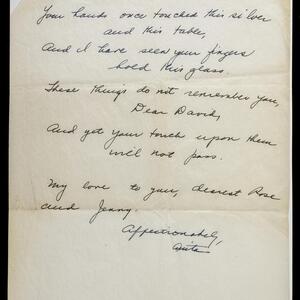 Your hands once touched this silver
and this table,
And I have seen your fingers
hold this glass.
These things do not remember you,
Dear David,
And yet your touch upon them
will not pass.
My love to you, dearest Rose
and Jenny.
Affectionately,
Anita